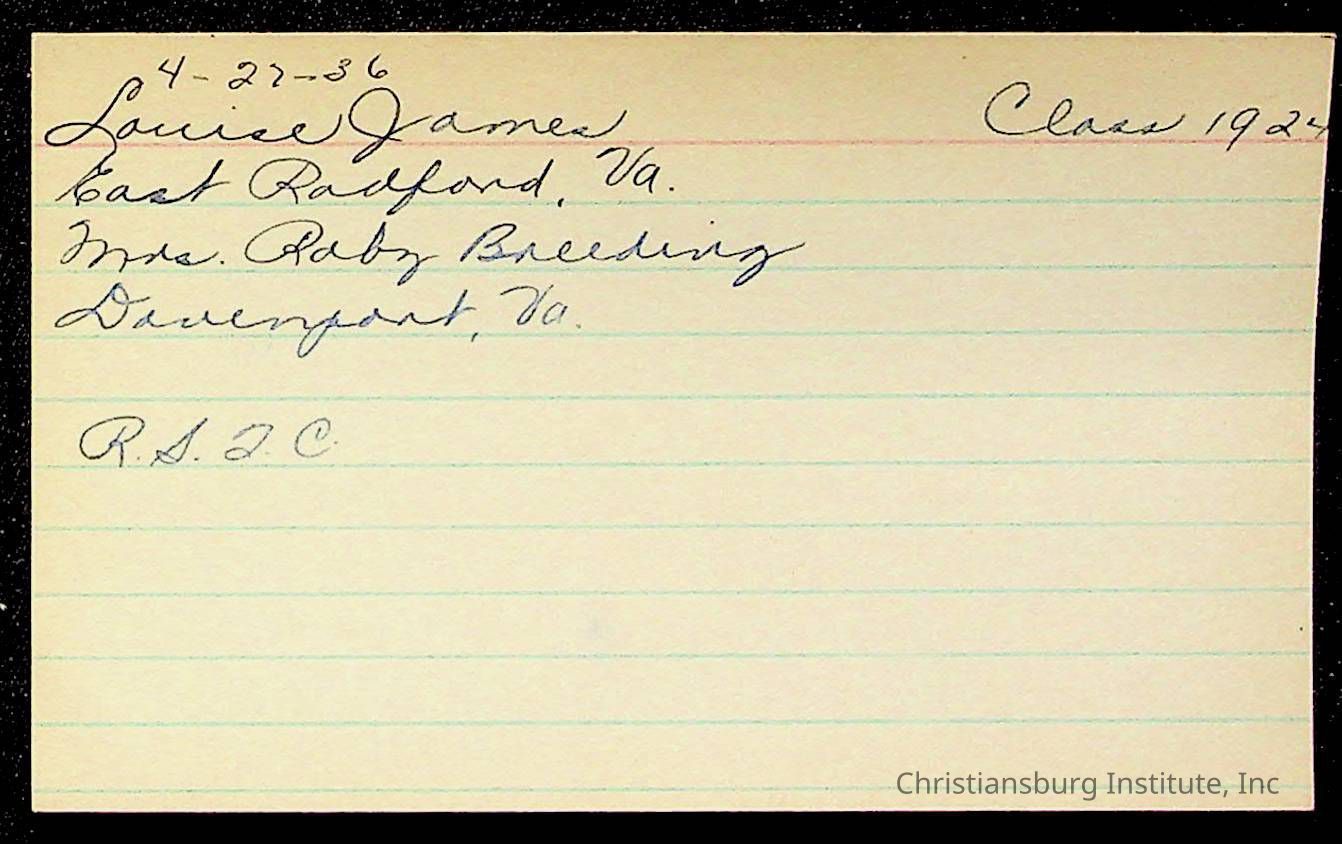 4-27-36
Louise James Class 1924
East Radford, Va.
Mrs. Roby Breeding
Davenport, Va.
R. S. T. C.
Christiansburg Institute, Inc